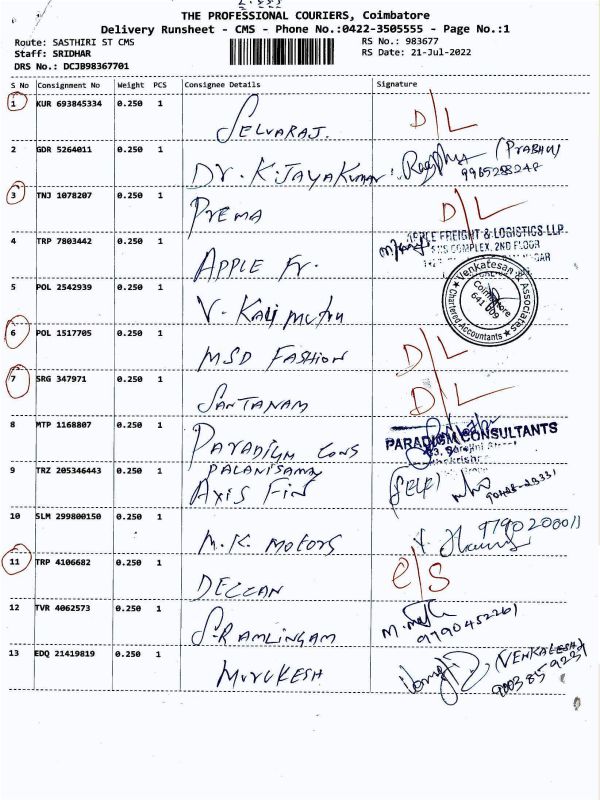 THE PROFESSIONAL COURIERS, Coimbatore
Delivery Runsheet - CMS - Phone No.:0422-3505555 - Page No.:1
Route: SASTHIRI ST CMS
RS No.: 983677
Staff: SRIDHAR
RS Date: 21-Jul-2022
DRS No.: DCJB98367701
S No Consignment No Weight PCS Consignee Details Signature
1 KUR 693845334 0.250 1 SELVARAJ. D/L
2 GDR 5264011 0.250 1 DR. K. JAYAKUMAR (PRABHU)
3 TNJ 1078207 0.250 1 PREMA D/L
4 TRP 7803442 0.250 1 APPLE Fr. APPLE FREIGHT & LOGISTICS LLP
COMPLEX, 2ND FLOOR
5 POL 2542939 0.250 1 V. Kalimuthu Venkatesan & Associates
Coimbatore
641 009
Chartered Accountants
6 POL 1517705 0.250 1 MSD FASHION D/L
7 SRG 347971 0.250 1 SANTANAM D/L
8 MTP 1168807 0.250 1 PARADIGM CONS PARADIGM CONSULTANTS
9 TRZ 205346443 0.250 1 PALANISAMY
AXIS FIN (SELF)
10 SLM 299800150 0.250 1 M.K. MOTORS
11 TRP 4106682 0.250 1 DECCAN C/S
12 TVR 4062573 0.250 1 S. RAMLINGAM 9790452261
13 EDQ 21419819 0.250 1 MURUKESH (VENKALESH)
9003859231